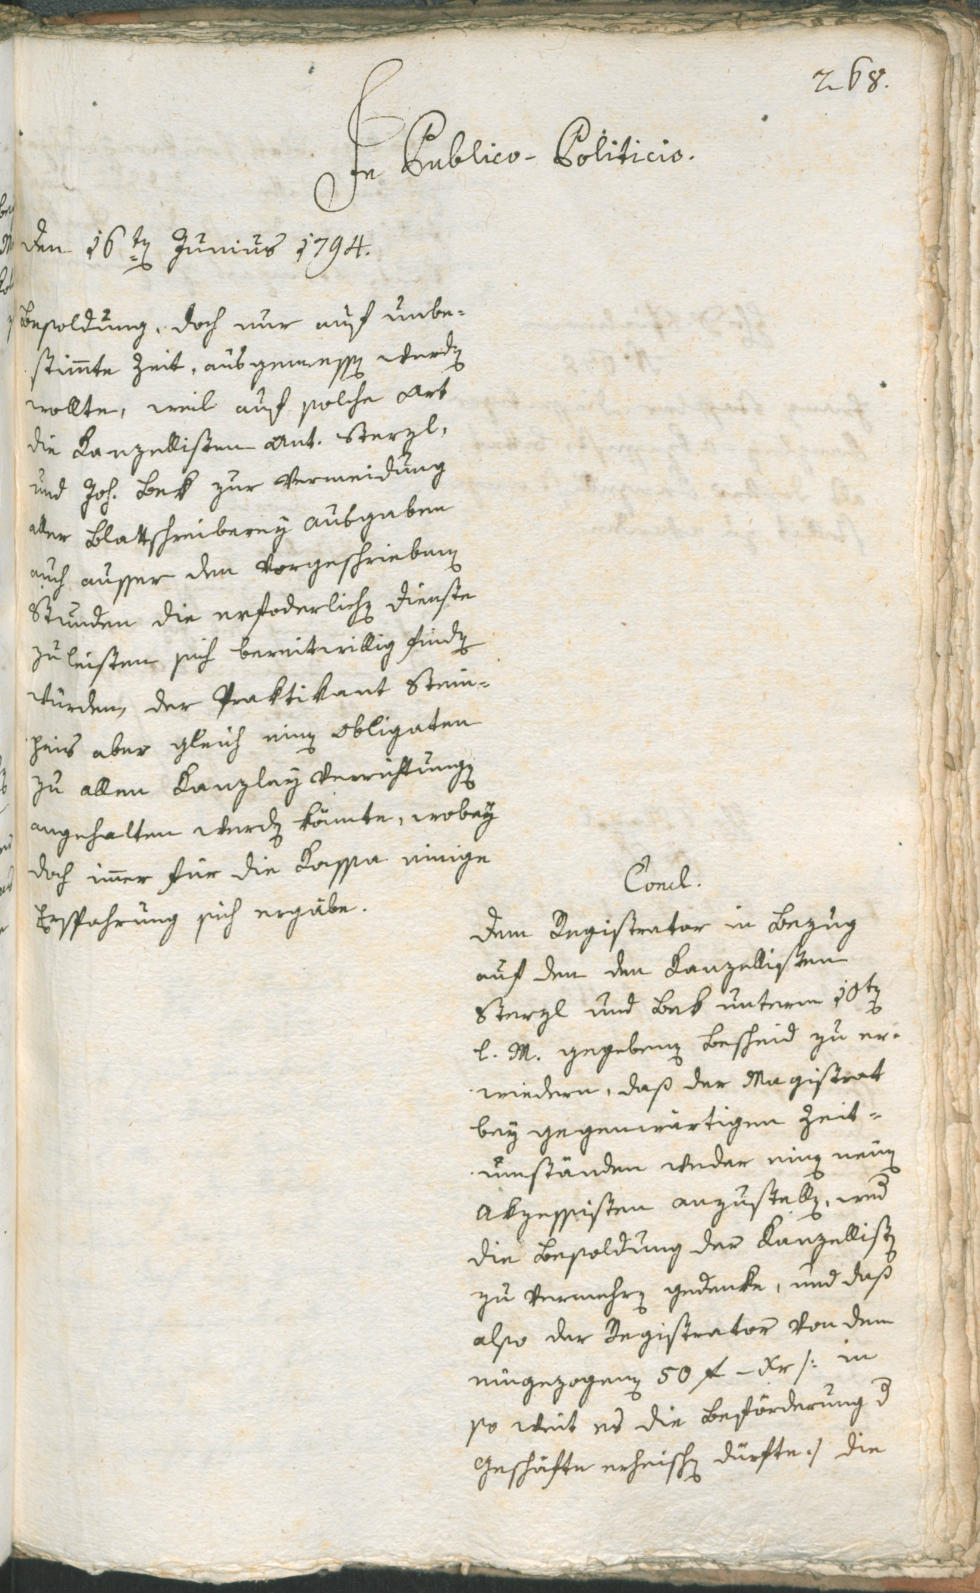 268.
In Publico-Politicis.
Den 16ten Junius 1794.
Besoldung, doch nur auf unbe-
stimmte Zeit, ausgemessen werden
wollte, weil auf solche Art
die Kanzellisten Ant. Sterzl,
und Joh. Bek zur Vermeidung
aller Blattschreiberey Ausgaben
auch ausser den vorgeschriebenen
Stunden die erfoderlichen Dienste
zu leisten sich bereitwillig finden
würden, der Praktikant Stein-
heis aber gleich einen Obligaten
zu allen Kanzley Verrichtungen
angehalten werden könnte, wobey
doch immer für die Kassa einige
Ersparung sich ergäbe.
Concl.
Dem Registrator in Bezug
auf den den Kanzellisten
Sterzl und Bek unterm 10ten
l. M. gegebenen Bescheid zu er-
wiedern, daß der Magistrat
bey gegenwärtigen Zeit-
umständen weder einen neuen
Akzessisten anzustellen, und
die Besoldung der Kanzellisten
zu vermehren gedenke, und daß
also der Registrator von den
eingezogenen 50 f – Xr /: in
so weit es die Beförderung d
Geschäfte erheischen dürfte :/ die